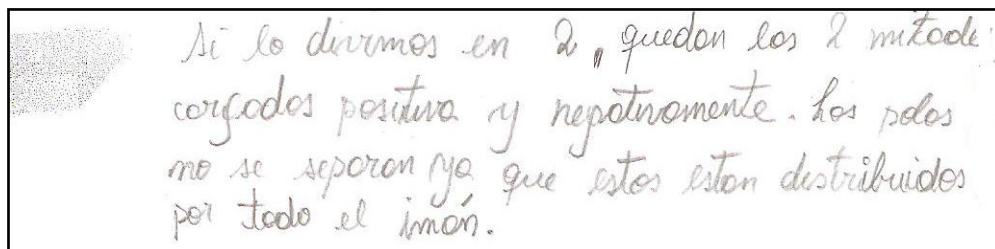 Si lo divimos en 2, quedan las 2 mitade
cargados positiva y negativamente. Los polos
no se separan ya que estos estan distribuidos
por todo el imán.